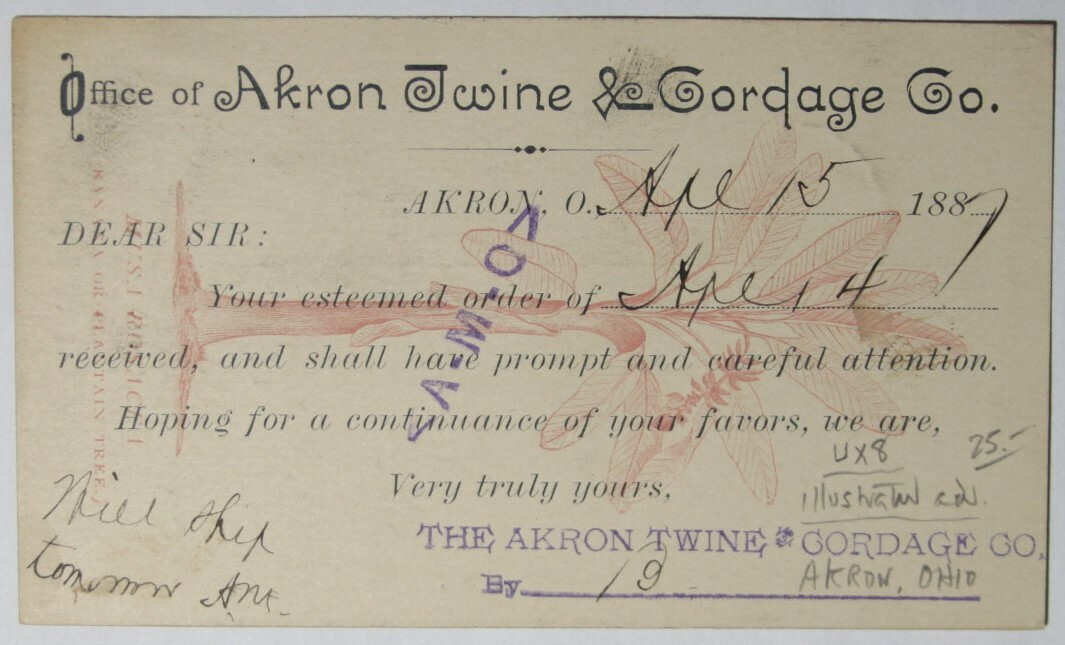 Office of Akron Twine & Cordage Co.
AKRON, O. Apl 15 1887
DEAR SIR:
Your esteemed order of Apl 14
received, and shall have prompt and careful attention.
Hoping for a continuance of your favors, we are,
Very truly yours,
THE AKRON TWINE & CORDAGE CO.
By
Will ship
tomorrow
UX8
25.-
illustrated adv.
AKRON, OHIO
OR PLANTAIN TREE.)